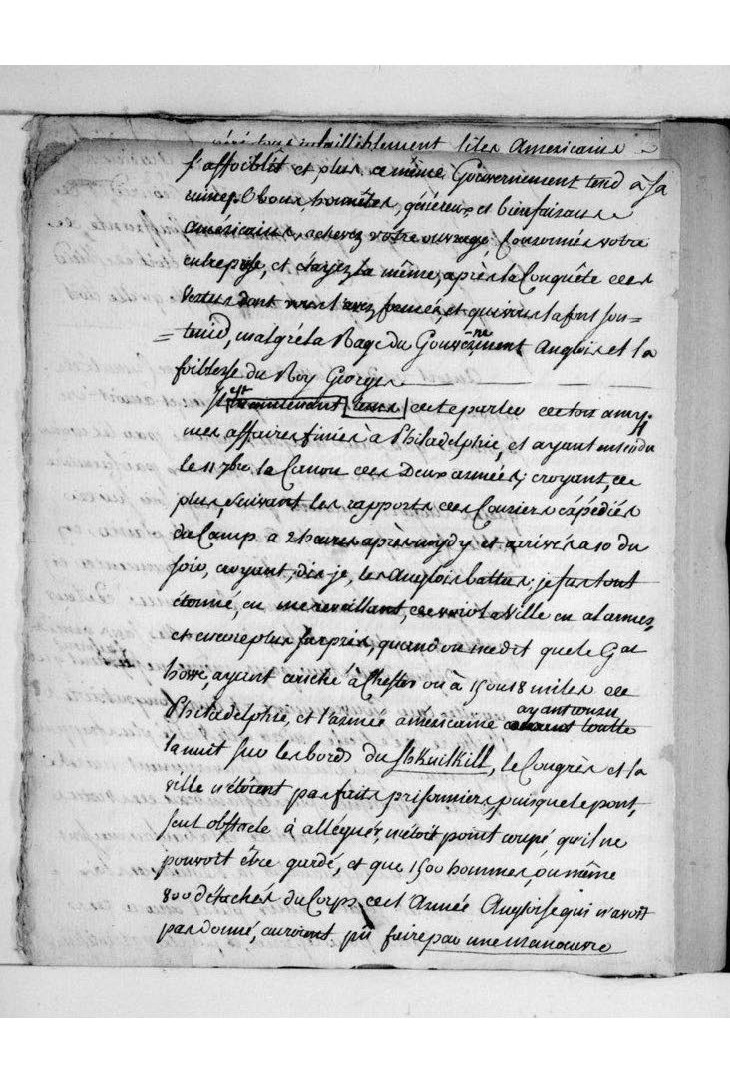 infailliblement si les Americains
s'affoiblit et, plus, ce même Gouvernement tend à sa
ruine. O bons, honnêtes, généreux et bienfaisans
américains, achevez votre ouvrage, Consomés votre
entreprise, et étayez la même, après la Conquête des
Vertus dont vous l'avez formée, et qui vous la font sou=
=tenir, malgré la Rage du Gouvernement Anglois et la
foiblesse du Roy Georges
Il est maintenant tems de te parler cette
mes affaires finies à Philadelphie, et ayant entendu
le 11 7bre le Canon des Deux armées; croyant, de
plus, suivant les rapports des Couriers expédiés
du Camp a 2 heures après mydy et arrivés a 10 du
soir, croyant, dis-je, les Anglois battus; je fus tout
étonné, en me reveillant, de voir la Ville en alarmes,
et encore plus surpris, quand on me dit que le Gal
howe, ayant couché à Chester ou à 15 ou 18 miles de
Philadelphie, et l'armée américaine ayant toutte
la nuit sur les bords du Shkuilkill, le Congrès et la
ville n'étoient pas faits prisonniers, puisque le pont,
seul obstacle à alléguer, n'étoit point coupé, qu'il ne
pouvoit être gardé, et que 1500 hommes, ou même
800 détachés du Corps de l'Armée Angloise qui n'avoit
pas donné, auroient pû faire par une manœuvre